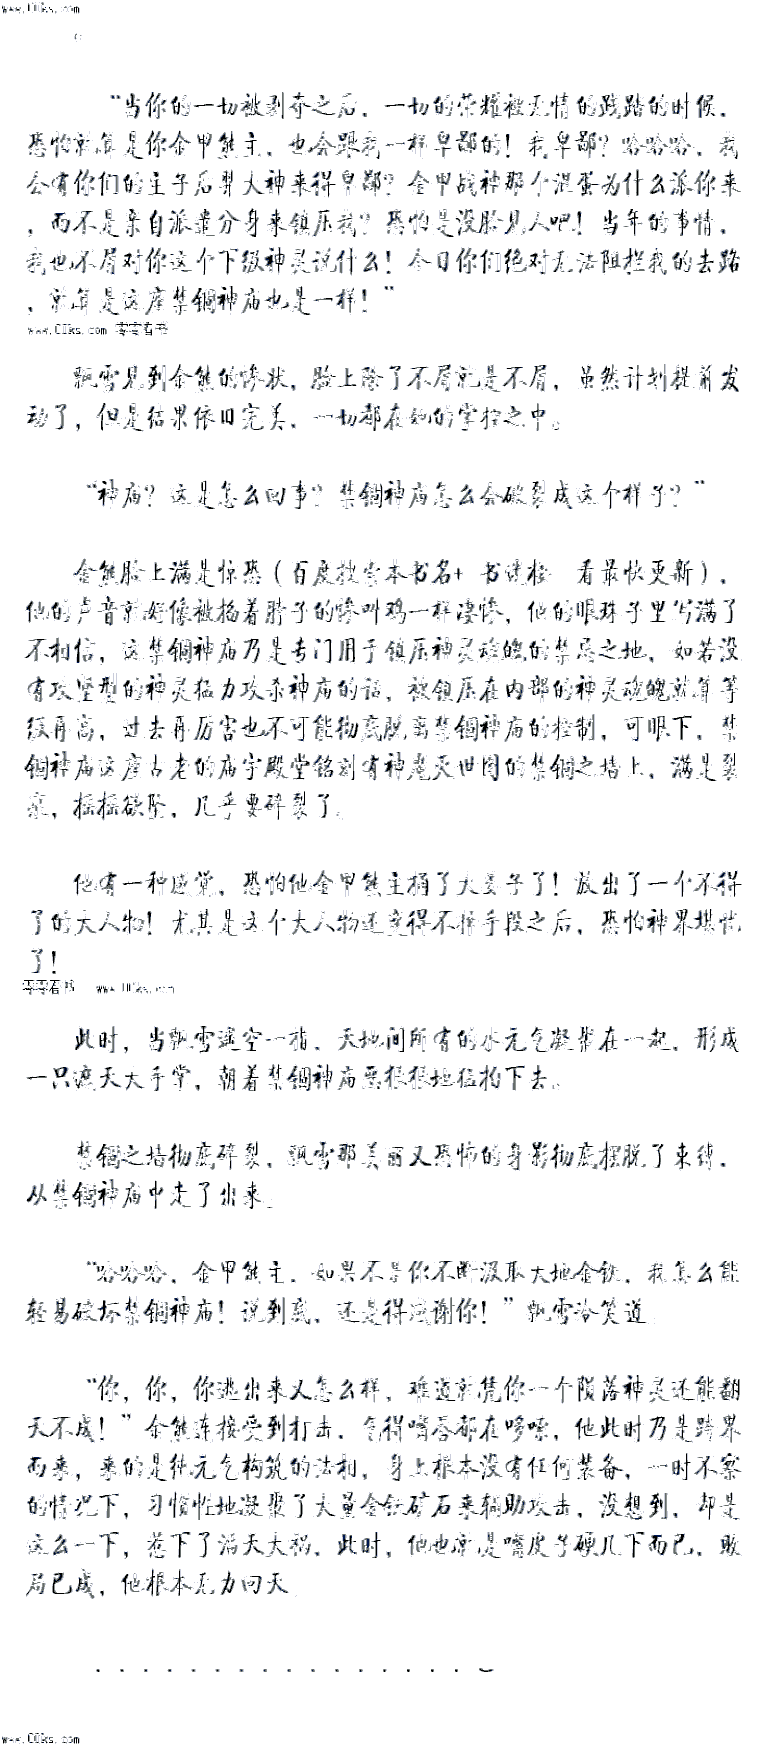 www.00ks.com
“当你的一切被剥夺之后，一切的荣耀被无情的践踏的时候，
恐怕就算是你金甲熊主，也会跟我一样卑鄙的！我卑鄙？哈哈哈，我
会有你们的主子后羿大神来得卑鄙？金甲战神那个混蛋为什么派你来
，而不是亲自派遣分身来镇压我？恐怕是没脸见人吧！当年的事情，
我也不屑对你这个下级神灵说什么！今日你们绝对无法阻拦我的去路
，就算是这座禁锢神庙也是一样！”
www.00ks.com 零零看书
飘雪见到金熊的惨状，脸上除了不屑就是不屑，虽然计划提前发
动了，但是结果依旧完美，一切都在她的掌控之中。
“神庙？这是怎么回事？禁锢神庙怎么会破裂成这个样子？”
金熊脸上满是惊恐（百度搜索本书名+ 书谜楼 看最快更新），
他的声音就好像被掐着脖子的惨叫鸡一样凄惨，他的眼珠子里写满了
不相信，这禁锢神庙乃是专门用于镇压神灵魂魄的禁忌之地，如若没
有攻坚型的神灵猛力攻杀神庙的话，被镇压在内部的神灵魂魄就算等
级再高，过去再厉害也不可能彻底脱离禁锢神庙的控制，可眼下，禁
锢神庙这座古老的庙宇殿堂铭刻有神魔灭世图的禁锢之墙上，满是裂
痕，摇摇欲坠，几乎要碎裂了。
他有一种感觉，恐怕他金甲熊主捅了大娄子了！放出了一个不得
了的大人物！尤其是这个大人物还变得不择手段之后，恐怕神界堪忧
了！
零零看书 www.00ks.com
此时，当飘雪遥空一指，天地间所有的水元气凝聚在一起，形成
一只遮天大手掌，朝着禁锢神庙恶狠狠地猛拍下去。
禁锢之墙彻底碎裂，飘雪那美丽又恐怖的身影彻底摆脱了束缚，
从禁锢神庙中走了出来。
“哈哈哈，金甲熊主，如果不是你不断汲取大地金铁，我怎么能
轻易破坏禁锢神庙！说到底，还是得感谢你！”飘雪冷笑道。
“你，你，你逃出来又怎么样，难道就凭你一个陨落神灵还能翻
天不成！”金熊连接受到打击，气得嘴唇都在哆嗦，他此时乃是跨界
而来，来的是纯元气构筑的法相，身上根本没有任何装备，一时不察
的情况下，习惯性地凝聚了大量金铁矿石来辅助攻击，没想到，却是
这么一下，惹下了滔天大祸，此时，他也就是嘴皮子硬几下而已，败
局已成，他根本无力回天。
www.00ks.com